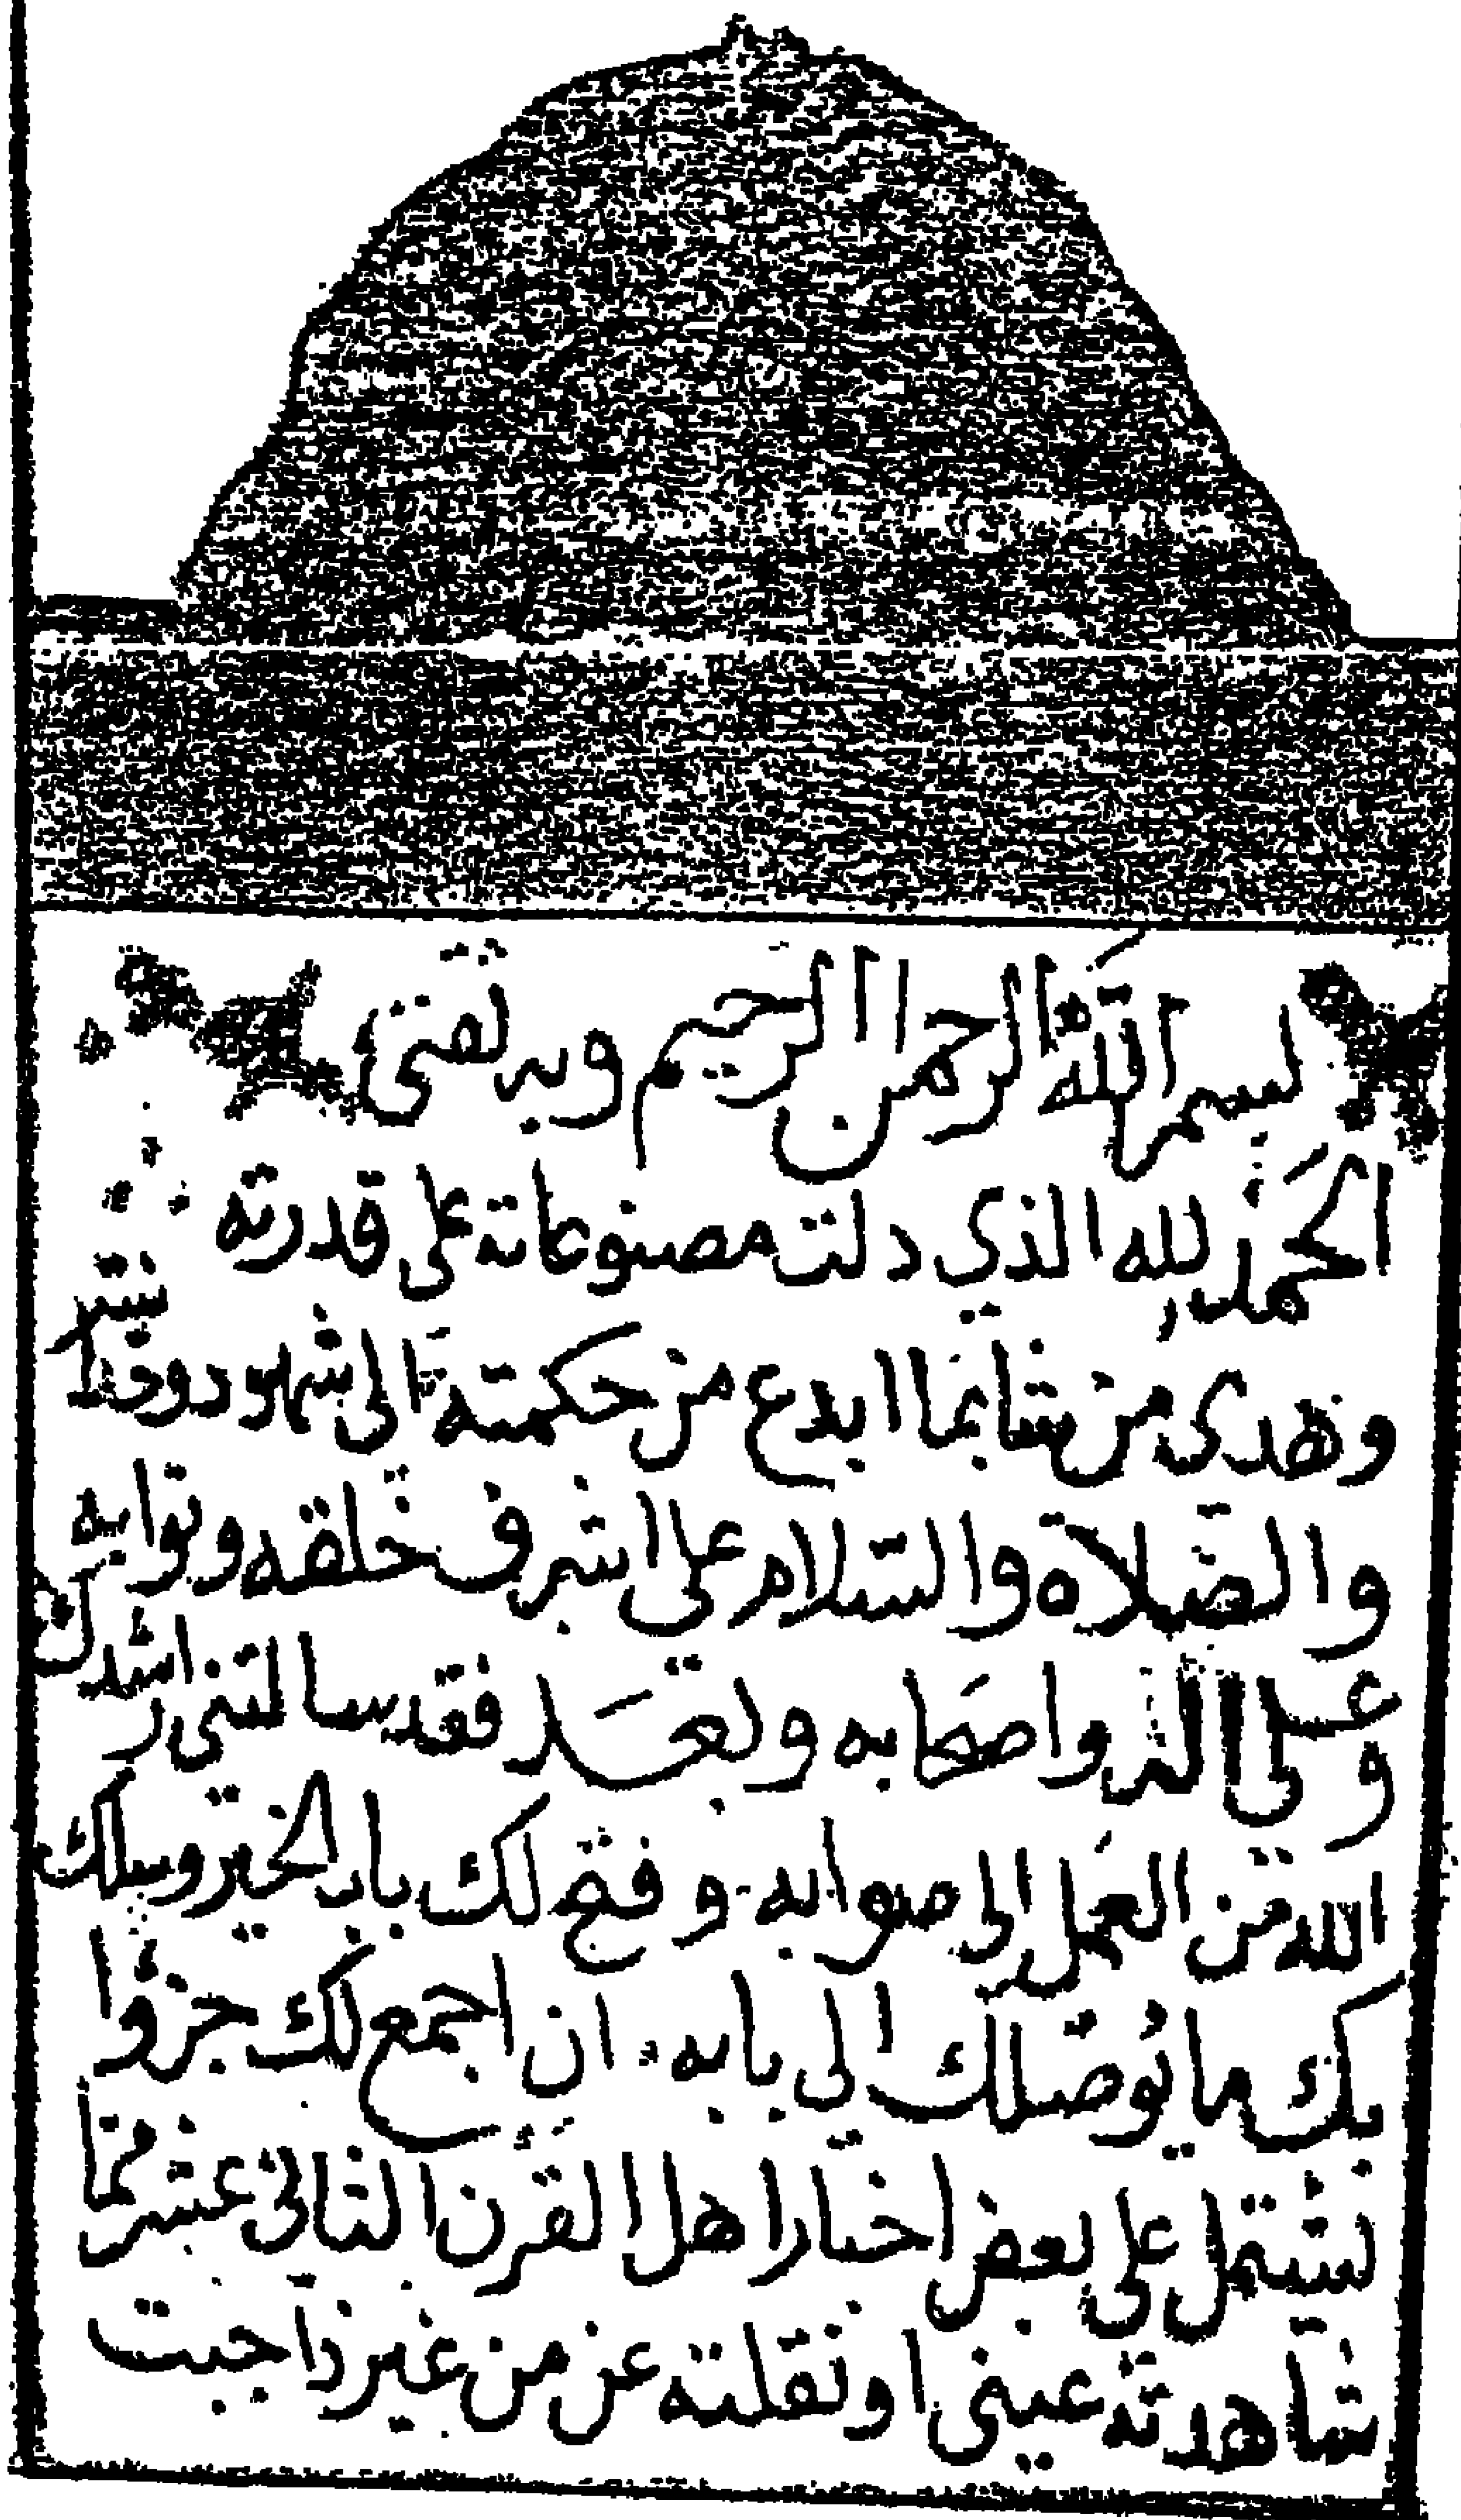 بسم الله الرحمن الرحيم وبه ثقتي
الحمد لله الذي دلت مصنوعاته على قدرته
وهدى من شا بما ابدع من حكمته الى شهود وحد
والصلاة والسلام على اشرف خلقه ونوابه
وعلى اله واصحابه وبعد فقد سالتني ارشدك
الله من العمل الى صوابه وفتح لك باب الخير وسلك
بك ما يوصلك الى بابه ان اجمع لك جزوا
يشتمل على بعض اخبار اهل القرن الثاني عشر مما
شاهدته عيني او نقلته عن من غير ذا جيت